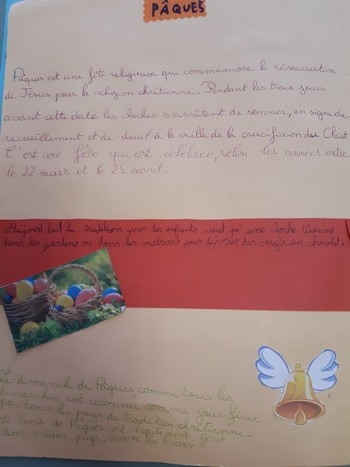 PÂQUES
Pâques est une fête religieuse qui commémore la résurrection
de Jésus pour la religion chrétienne. Pendant les trois jours
avant cette date les cloches s'arrêtent de sonner, en signe de
recueillement et de deuil à la veille de la crucifixion du Christ
C'est une fête qui est célébrée, selon les années entre
le 22 mars et le 25 avril.
la tradition pour les enfants veut qu'une cloche vienne
dans les jardins ou dans les maisons pour déposer des oeufs en chocolat.
Le dimanche de Pâques, comme tous les
dimanches, est reconnu comme jour férié
par tous les pays de tradition chrétienne.
Le lundi de Pâques est également jour
dans certains pays,